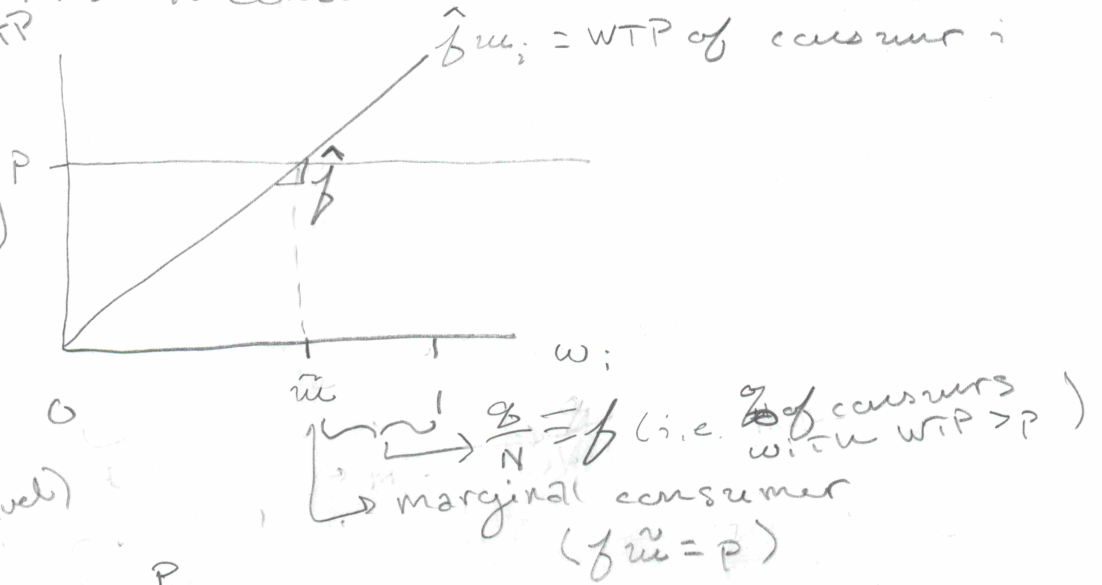 f̂ w_i = WTP of consumer i
P
f̂
w_i
w̃
0 1
q/N = f (i.e. % of consumers
with WTP > p)
marginal consumer
(f w̃ = p)
P